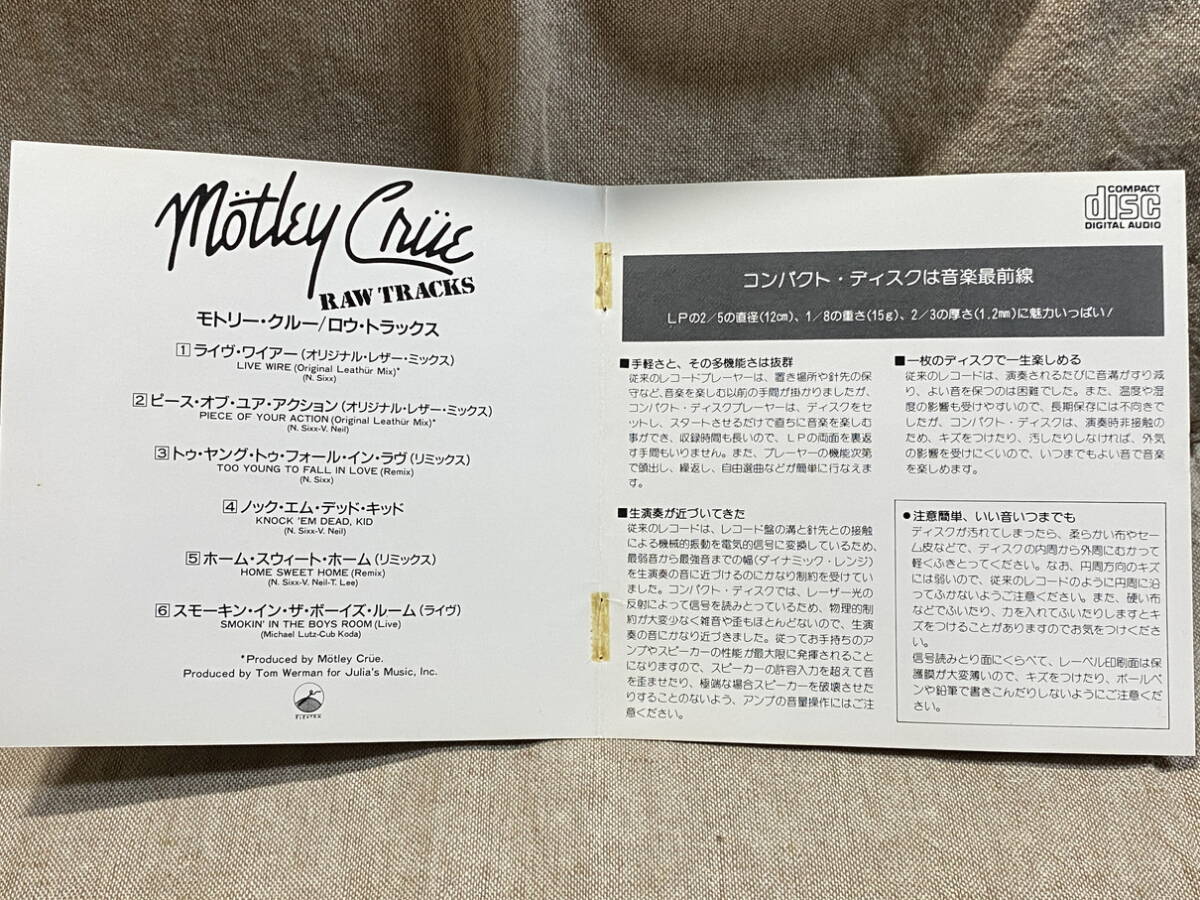 Mötley Crüe
RAW TRACKS
モトリー・クルー/ロウ・トラックス
1 ライヴ・ワイアー(オリジナル・レザー・ミックス)
LIVE WIRE (Original Leathür Mix)*
(N. Sixx)
2 ピース・オブ・ユア・アクション(オリジナル・レザー・ミックス)
PIECE OF YOUR ACTION (Original Leathür Mix)*
(N. Sixx-V. Neil)
3 トゥ・ヤング・トゥ・フォール・イン・ラヴ(リミックス)
TOO YOUNG TO FALL IN LOVE (Remix)
(N. Sixx)
4 ノック・エム・デッド・キッド
KNOCK 'EM DEAD, KID
(N. Sixx-V. Neil)
5 ホーム・スウィート・ホーム(リミックス)
HOME SWEET HOME (Remix)
(N. Sixx-V. Neil-T. Lee)
6 スモーキン・イン・ザ・ボーイズ・ルーム(ライヴ)
SMOKIN' IN THE BOYS ROOM (Live)
(Michael Lutz-Cub Koda)
*Produced by Mötley Crüe.
Produced by Tom Werman for Julia's Music, Inc.
ELEKTRA
COMPACT
disc
DIGITAL AUDIO
コンパクト・ディスクは音楽最前線
LPの2/5の直径(12cm)、1/8の重さ(15g)、2/3の厚さ(1.2mm)に魅力いっぱい!
■手軽さと、その多機能さは抜群
従来のレコードプレーヤーは、置き場所や針先の保
守など、音楽を楽しむ以前の手間が掛かりましたが、
コンパクト・ディスクプレーヤーは、ディスクをセ
ットし、スタートさせるだけで直ちに音楽を楽しむ
事ができ、収録時間も長いので、LPの両面を裏返
す手間もいりません。また、プレーヤーの機能次第
で頭出し、繰返し、自由選曲などが簡単に行なえま
す。
■生演奏が近づいてきた
従来のレコードは、レコード盤の溝と針先との接触
による機械的振動を電気的信号に変換しているため、
最弱音から最強音までの幅(ダイナミック・レンジ)
を生演奏の音に近づけるのにかなり制約を受けてい
ました。コンパクト・ディスクでは、レーザー光の
反射によって信号を読みとっているため、物理的制
約が大変少なく雑音や歪もほとんどないので、生演
奏の音にかなり近づきました。従ってお手持ちのア
ンプやスピーカーの性能が最大限に発揮されること
になりますので、スピーカーの許容入力を超えて音
を歪ませたり、極端な場合スピーカーを破壊させた
りすることのないよう、アンプの音量操作にはご注
意ください。
■一枚のディスクで一生楽しめる
従来のレコードは、演奏されるたびに音溝がすり減
り、よい音を保つのは困難でした。また、温度や湿
度の影響も受けやすいので、長期保存には不向きで
したが、コンパクト・ディスクは、演奏時非接触の
ため、キズをつけたり、汚したりしなければ、外気
の影響を受けにくいので、いつまでもよい音で音楽
を楽しめます。
●注意簡単、いい音いつまでも
ディスクが汚れてしまったら、柔らかい布やセー
ム皮などで、ディスクの内周から外周にむかって
軽くふきとってください。なお、円周方向のキズ
には弱いので、従来のレコードのように円周に沿
ってふかないようご注意ください。また、硬い布
などでふいたり、力を入れてふいたりしますとキ
ズをつけることがありますのでお気をつけくださ
い。
信号読みとり面にくらべて、レーベル印刷面は保
護膜が大変薄いので、キズをつけたり、ボールペ
ンや鉛筆で書きこんだりしないようにご注意くだ
さい。